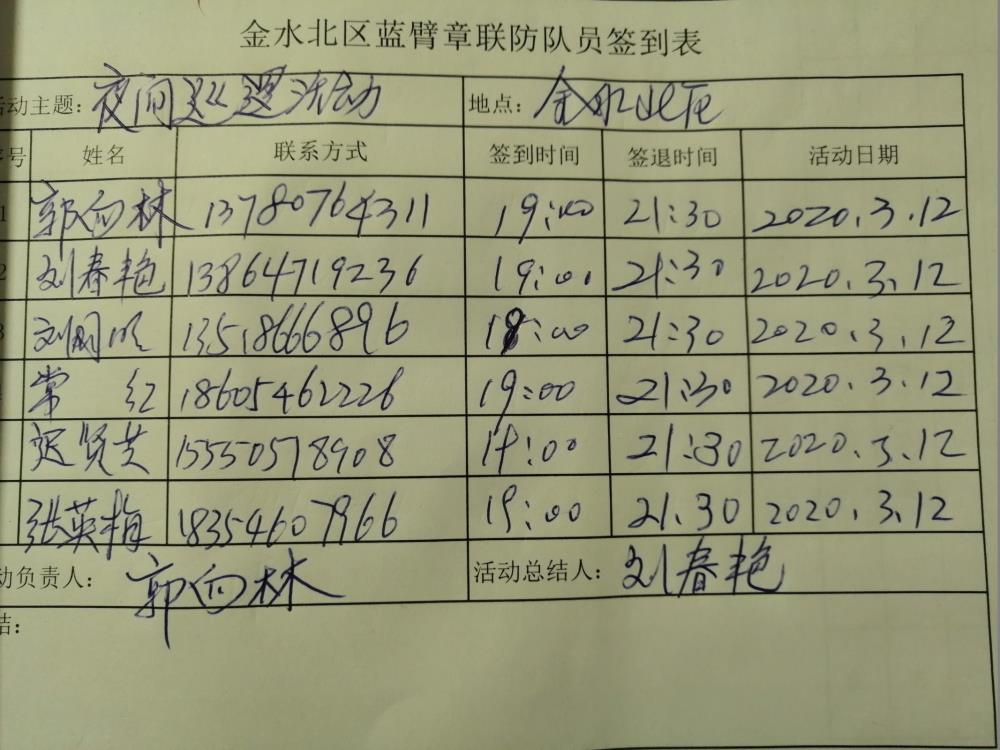 金水北区蓝臂章联防队员签到表
活动主题: 夜间巡逻活动 地点: 金水北区
序号 姓名 联系方式 签到时间 签退时间 活动日期
1 郭向林 13780764311 19:00 21:30 2020.3.12
2 刘春艳 13864719236 19:00 21:30 2020.3.12
3 刘明 13518666896 19:00 21:30 2020.3.12
常红 18605462226 19:00 21:30 2020.3.12
迟贤芝 15550578908 19:00 21:30 2020.3.12
张英梅 18354607966 19:00 21.30 2020.3.12
动负责人: 郭向林 活动总结人: 刘春艳
结: